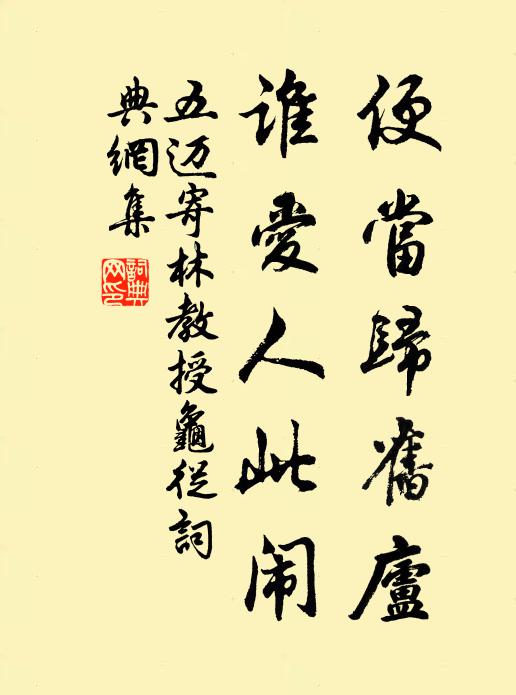 便當歸舊廬
誰愛人此闹
五迈寄林教授龜從詞
典網集
詞典网印